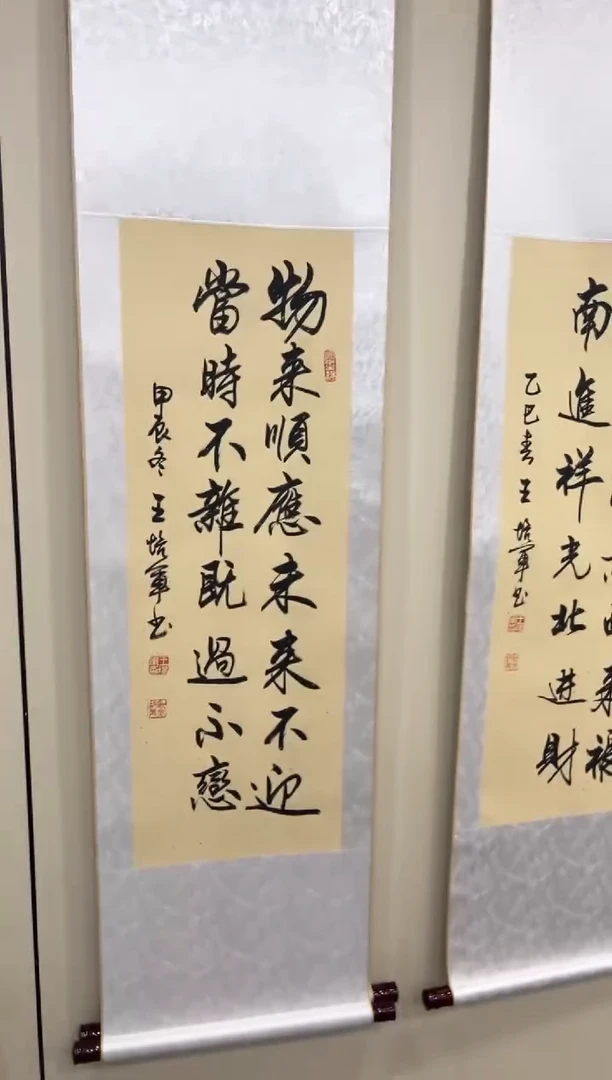 物来順應未来不迎
當時不雜既過不戀
甲辰冬 王培軍书
南進祥光北进財
乙巳春 王培軍书